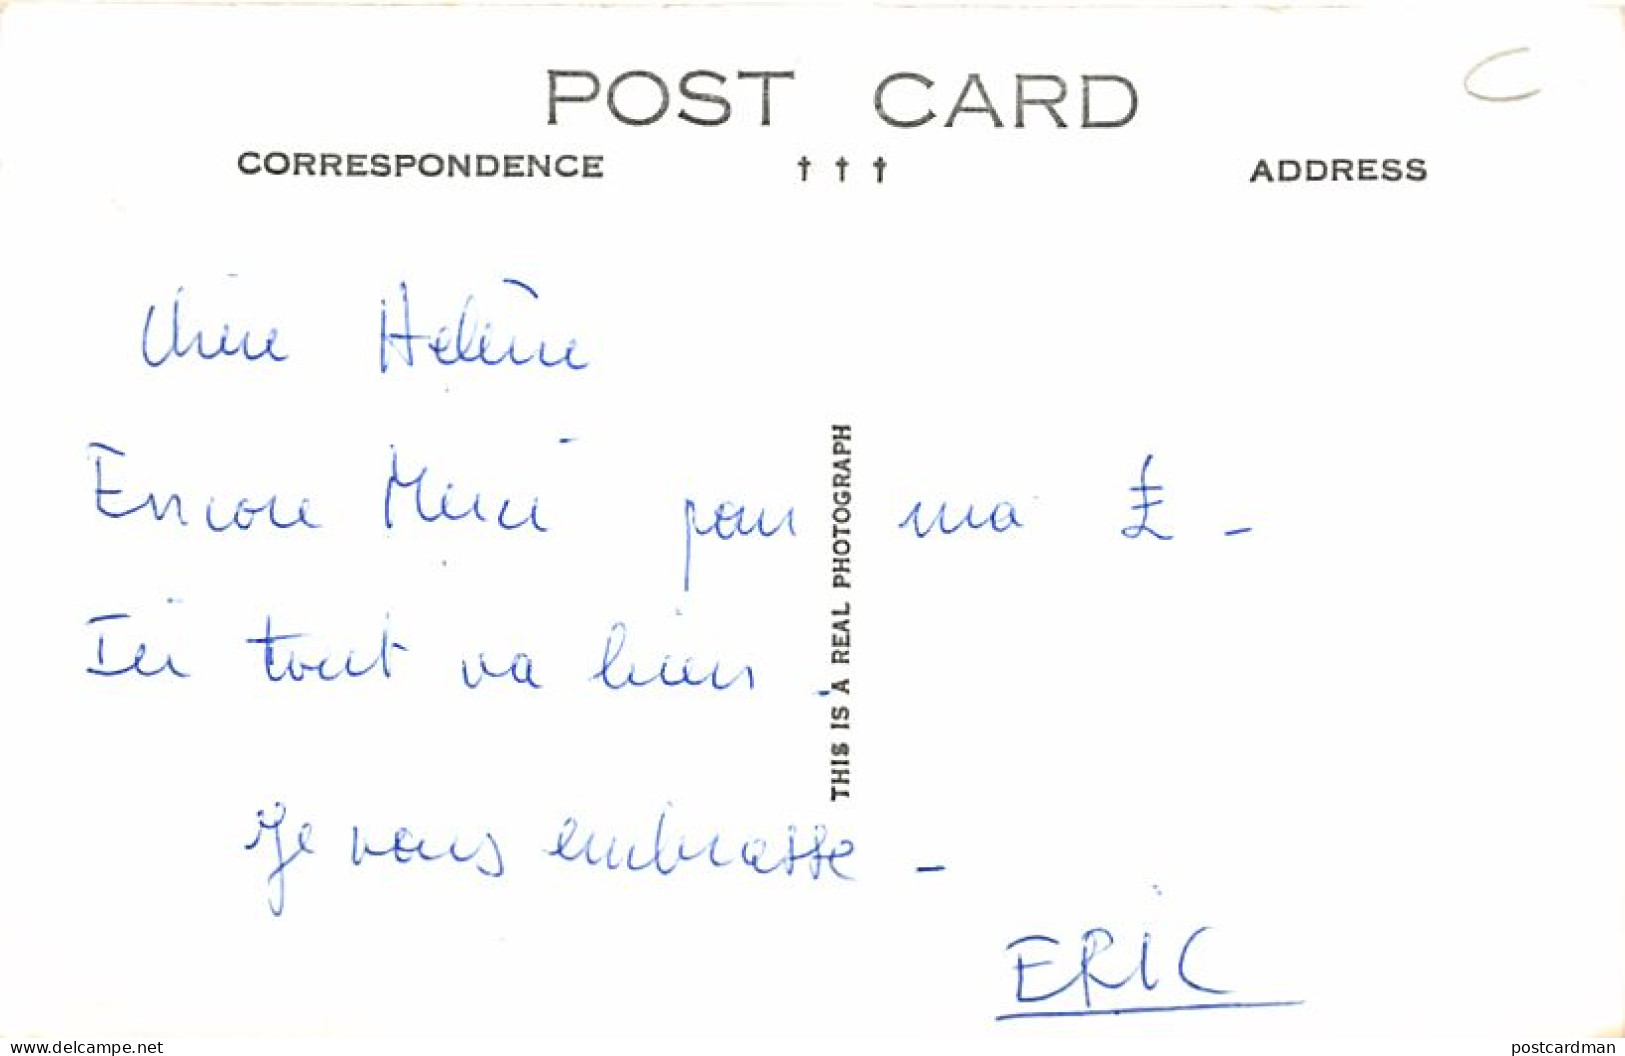 POST CARD
C
CORRESPONDENCE † † † ADDRESS
Chère Helène
Encore Merci pour ma £ -
Ici tout va bien.
Je vous embrasse -
ERIC
THIS IS A REAL PHOTOGRAPH
www.delcampe.net
postcardman